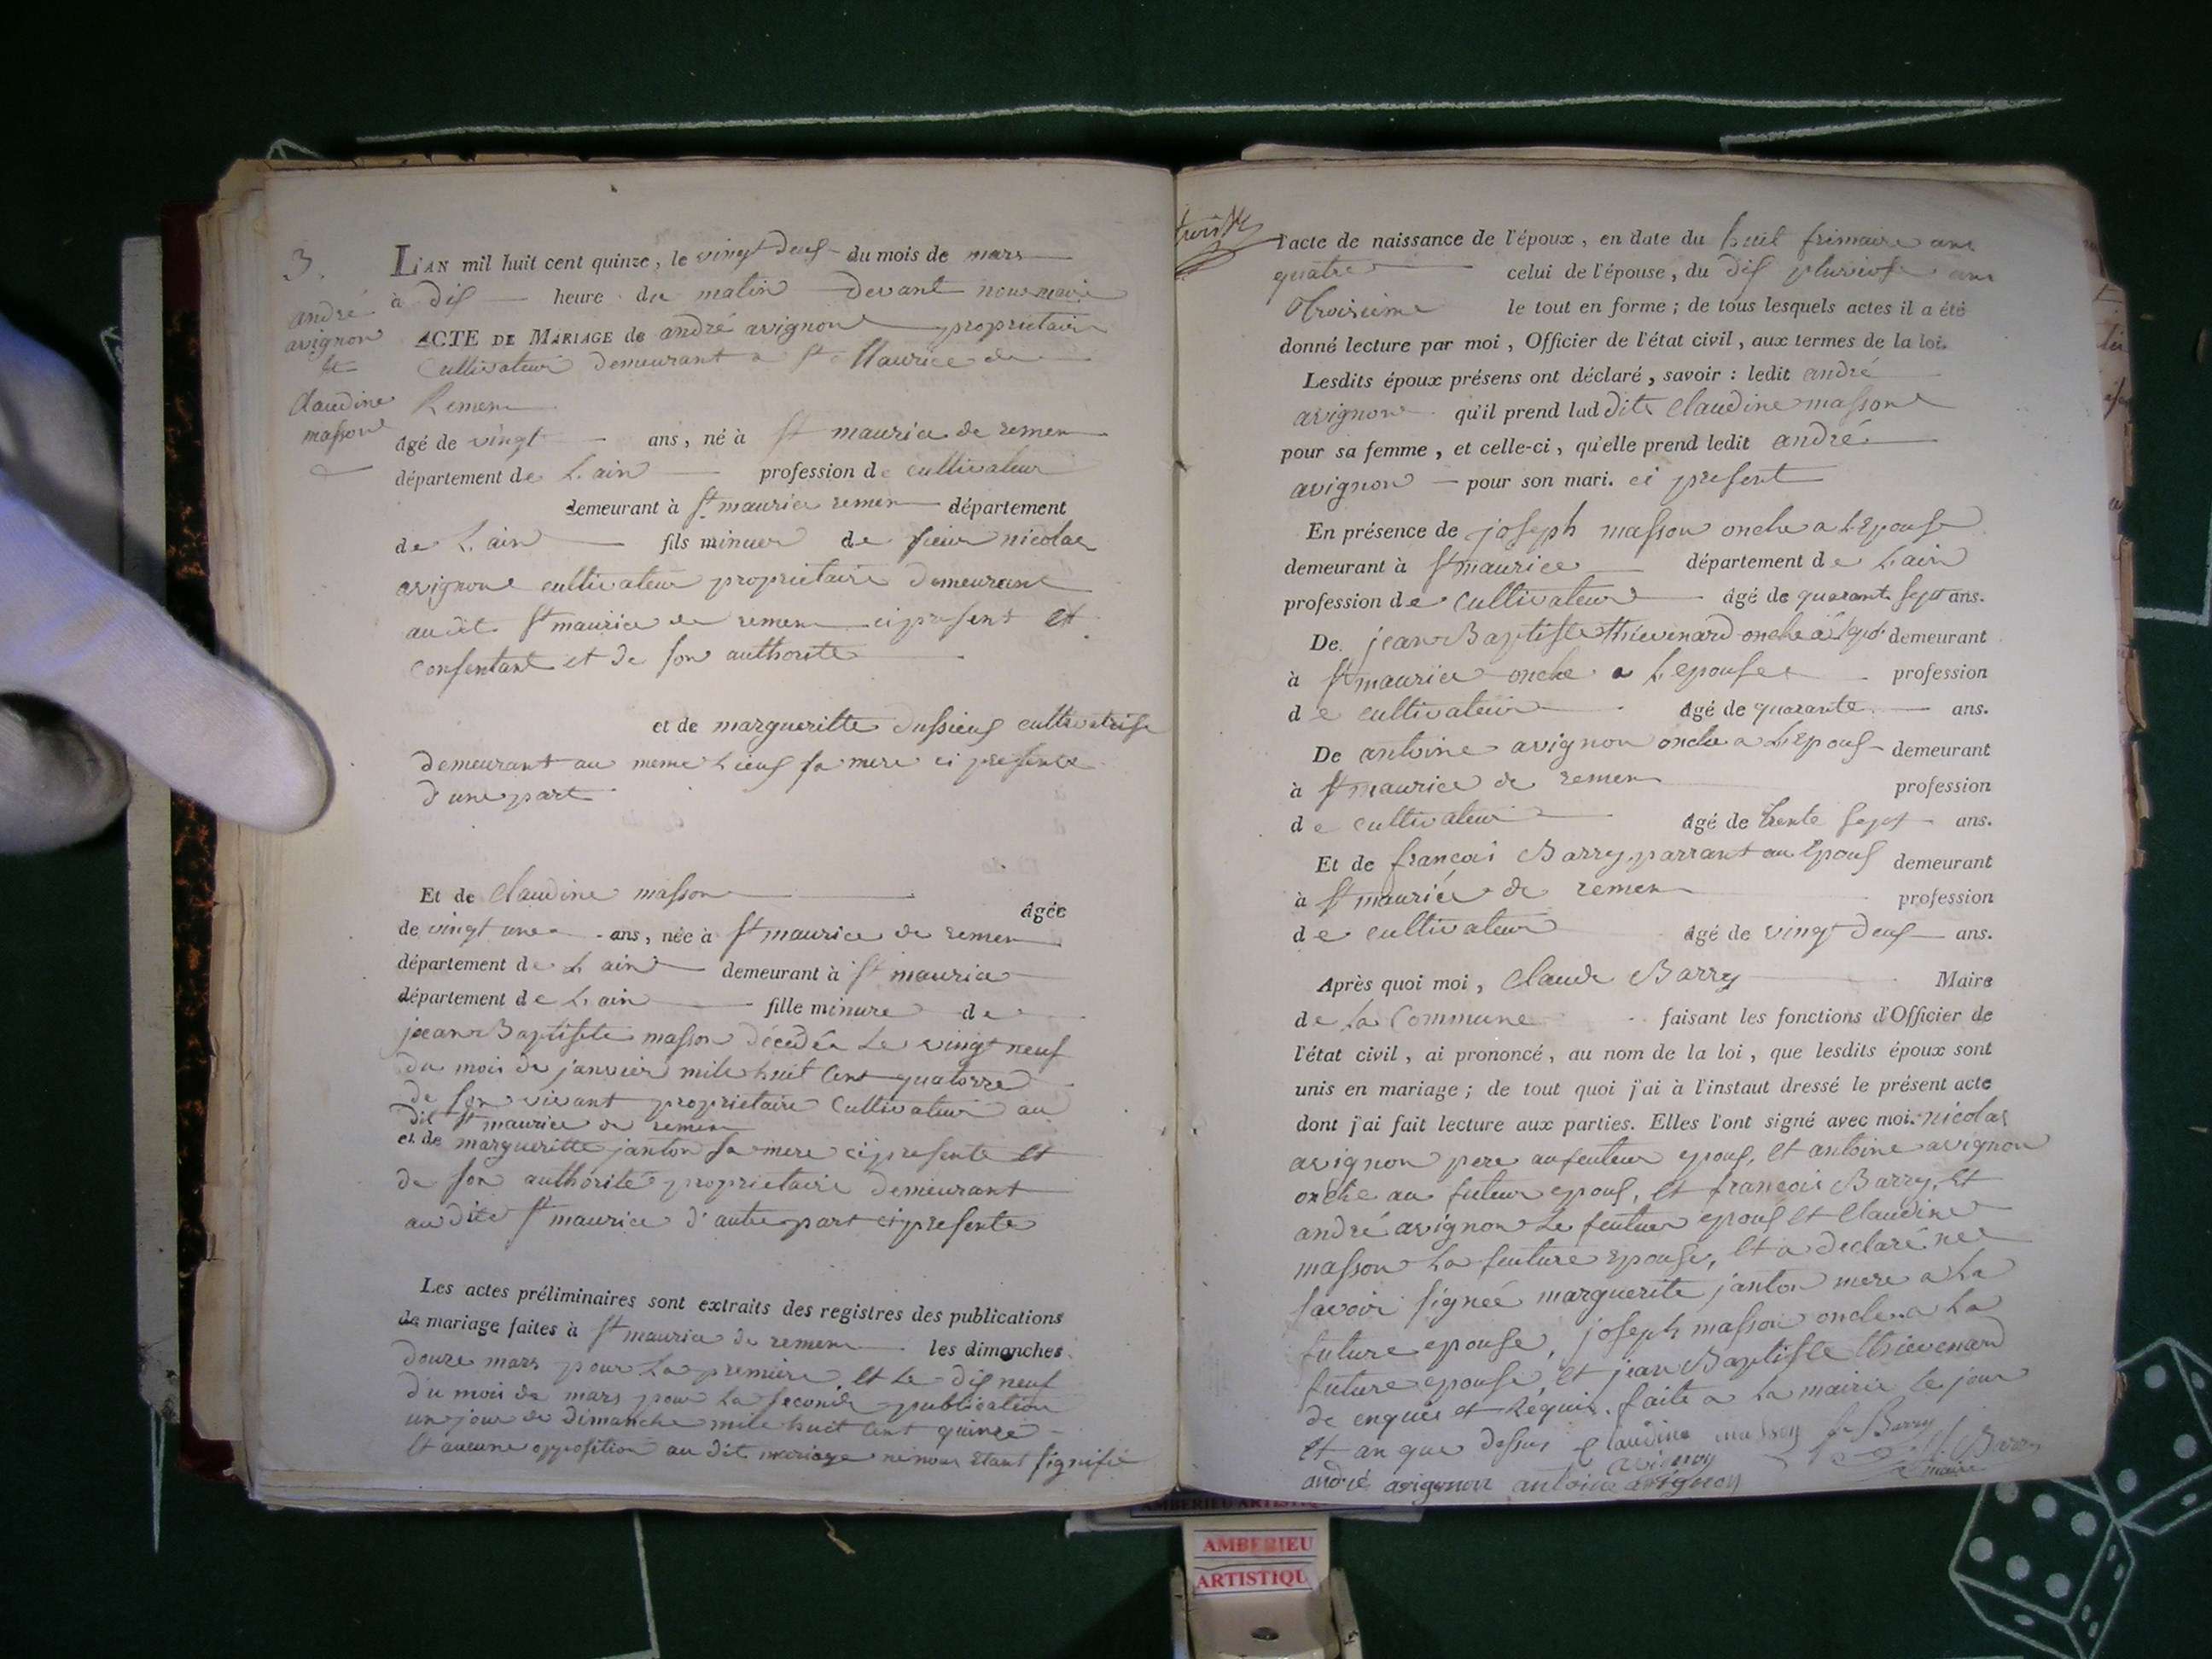 3.
andré
avignon
et
Claudine
masson
L'AN mil huit cent quinze, le vingt deux du mois de mars
à dix heure du matin devant nous maire
ACTE DE MARIAGE de andré avignon proprietaire
Cultivateur demeurant a St Maurice de
Remen
âgé de vingt ans, né à St maurice de remen
département de L'ain profession de cultivateur
demeurant à St maurice remen département
de L'ain fils mineur de sieur nicolas
avignon cultivateur proprietaire demeurant
audit St maurice de remen ci present et
Consentant et de son authorite
et de margueritte Dussieux cultivatrise
demeurant au meme Lieux sa mere ci presente
d'une part
Et de Claudine masson âgée
de vingt une ans, née à St maurice de remen
département de L'ain demeurant à St maurice
département de L'ain fille minure de
jean Baptiste masson décédé Le vingt neuf
du mois de janvier mile huit Cent quatorze
de son vivant proprietaire Cultivateur au
dit St maurice de remen
et de margueritte janton sa mere ci presente et
de son authorité proprietaire demeurant
au dite St maurice d'autre part ci presente
Les actes préliminaires sont extraits des registres des publications
de mariage faites à St maurice de remen les dimanches
douze mars pour La premiere, et Le dix neuf
du mois de mars pour La seconde publication
un jour de dimanche mile huit Cent quinze
Et aucune opposition au dit mariage ne nous Etant signifié
l'acte de naissance de l'époux, en date du huit frimaire an
quatre celui de l'épouse, du dix pluviose an
troisieme le tout en forme; de tous lesquels actes il a été
donné lecture par moi, Officier de l'état civil, aux termes de la loi.
Lesdits époux présens ont déclaré, savoir: ledit andré
avignon qu'il prend lad dite Claudine masson
pour sa femme, et celle-ci, qu'elle prend ledit andré
avignon pour son mari. ci present
En présence de joseph masson oncle a L'Epouse
demeurant à St maurice département de L'ain
profession de Cultivateur âgé de quarant sept ans.
De jean Baptiste thievenard oncle à demeurant
à St maurice oncle a L'epouse profession
de cultivateur âgé de quarante ans.
De antoine avignon oncle a L'Epoux demeurant
à St maurice de remen profession
de cultivateur âgé de trente sept ans.
Et de françois Barry parrant au Epoux demeurant
à St maurice de remen profession
de cultivateur âgé de vingt deux ans.
Après quoi moi, Claude Barry Maire
de La Commune faisant les fonctions d'Officier de
l'état civil, ai prononcé, au nom de la loi, que lesdits époux sont
unis en mariage; de tout quoi j'ai à l'instaut dressé le présent acte
dont j'ai fait lecture aux parties. Elles l'ont signé avec moi. nicolas
avignon pere au feuteur epoux, et antoine avignon
oncle au futeur epoux, et françois Barry, et
andré avignon Le feuteur epoux et Claudine
masson La feuture epouse, et a declaré ne
savoir signée marguerite janton mere a La
future epouse, joseph masson oncle a La
future epouse, et jean Baptiste thievenard
de enquis et Requis. faite a La mairie Le jour
et an que dessus claudine masson fr Barry
avignon Cl. Barry
andré avignon antoine avignon maire
AMBERIEU ARTISTIQU
AMBERIEU
ARTISTIQU